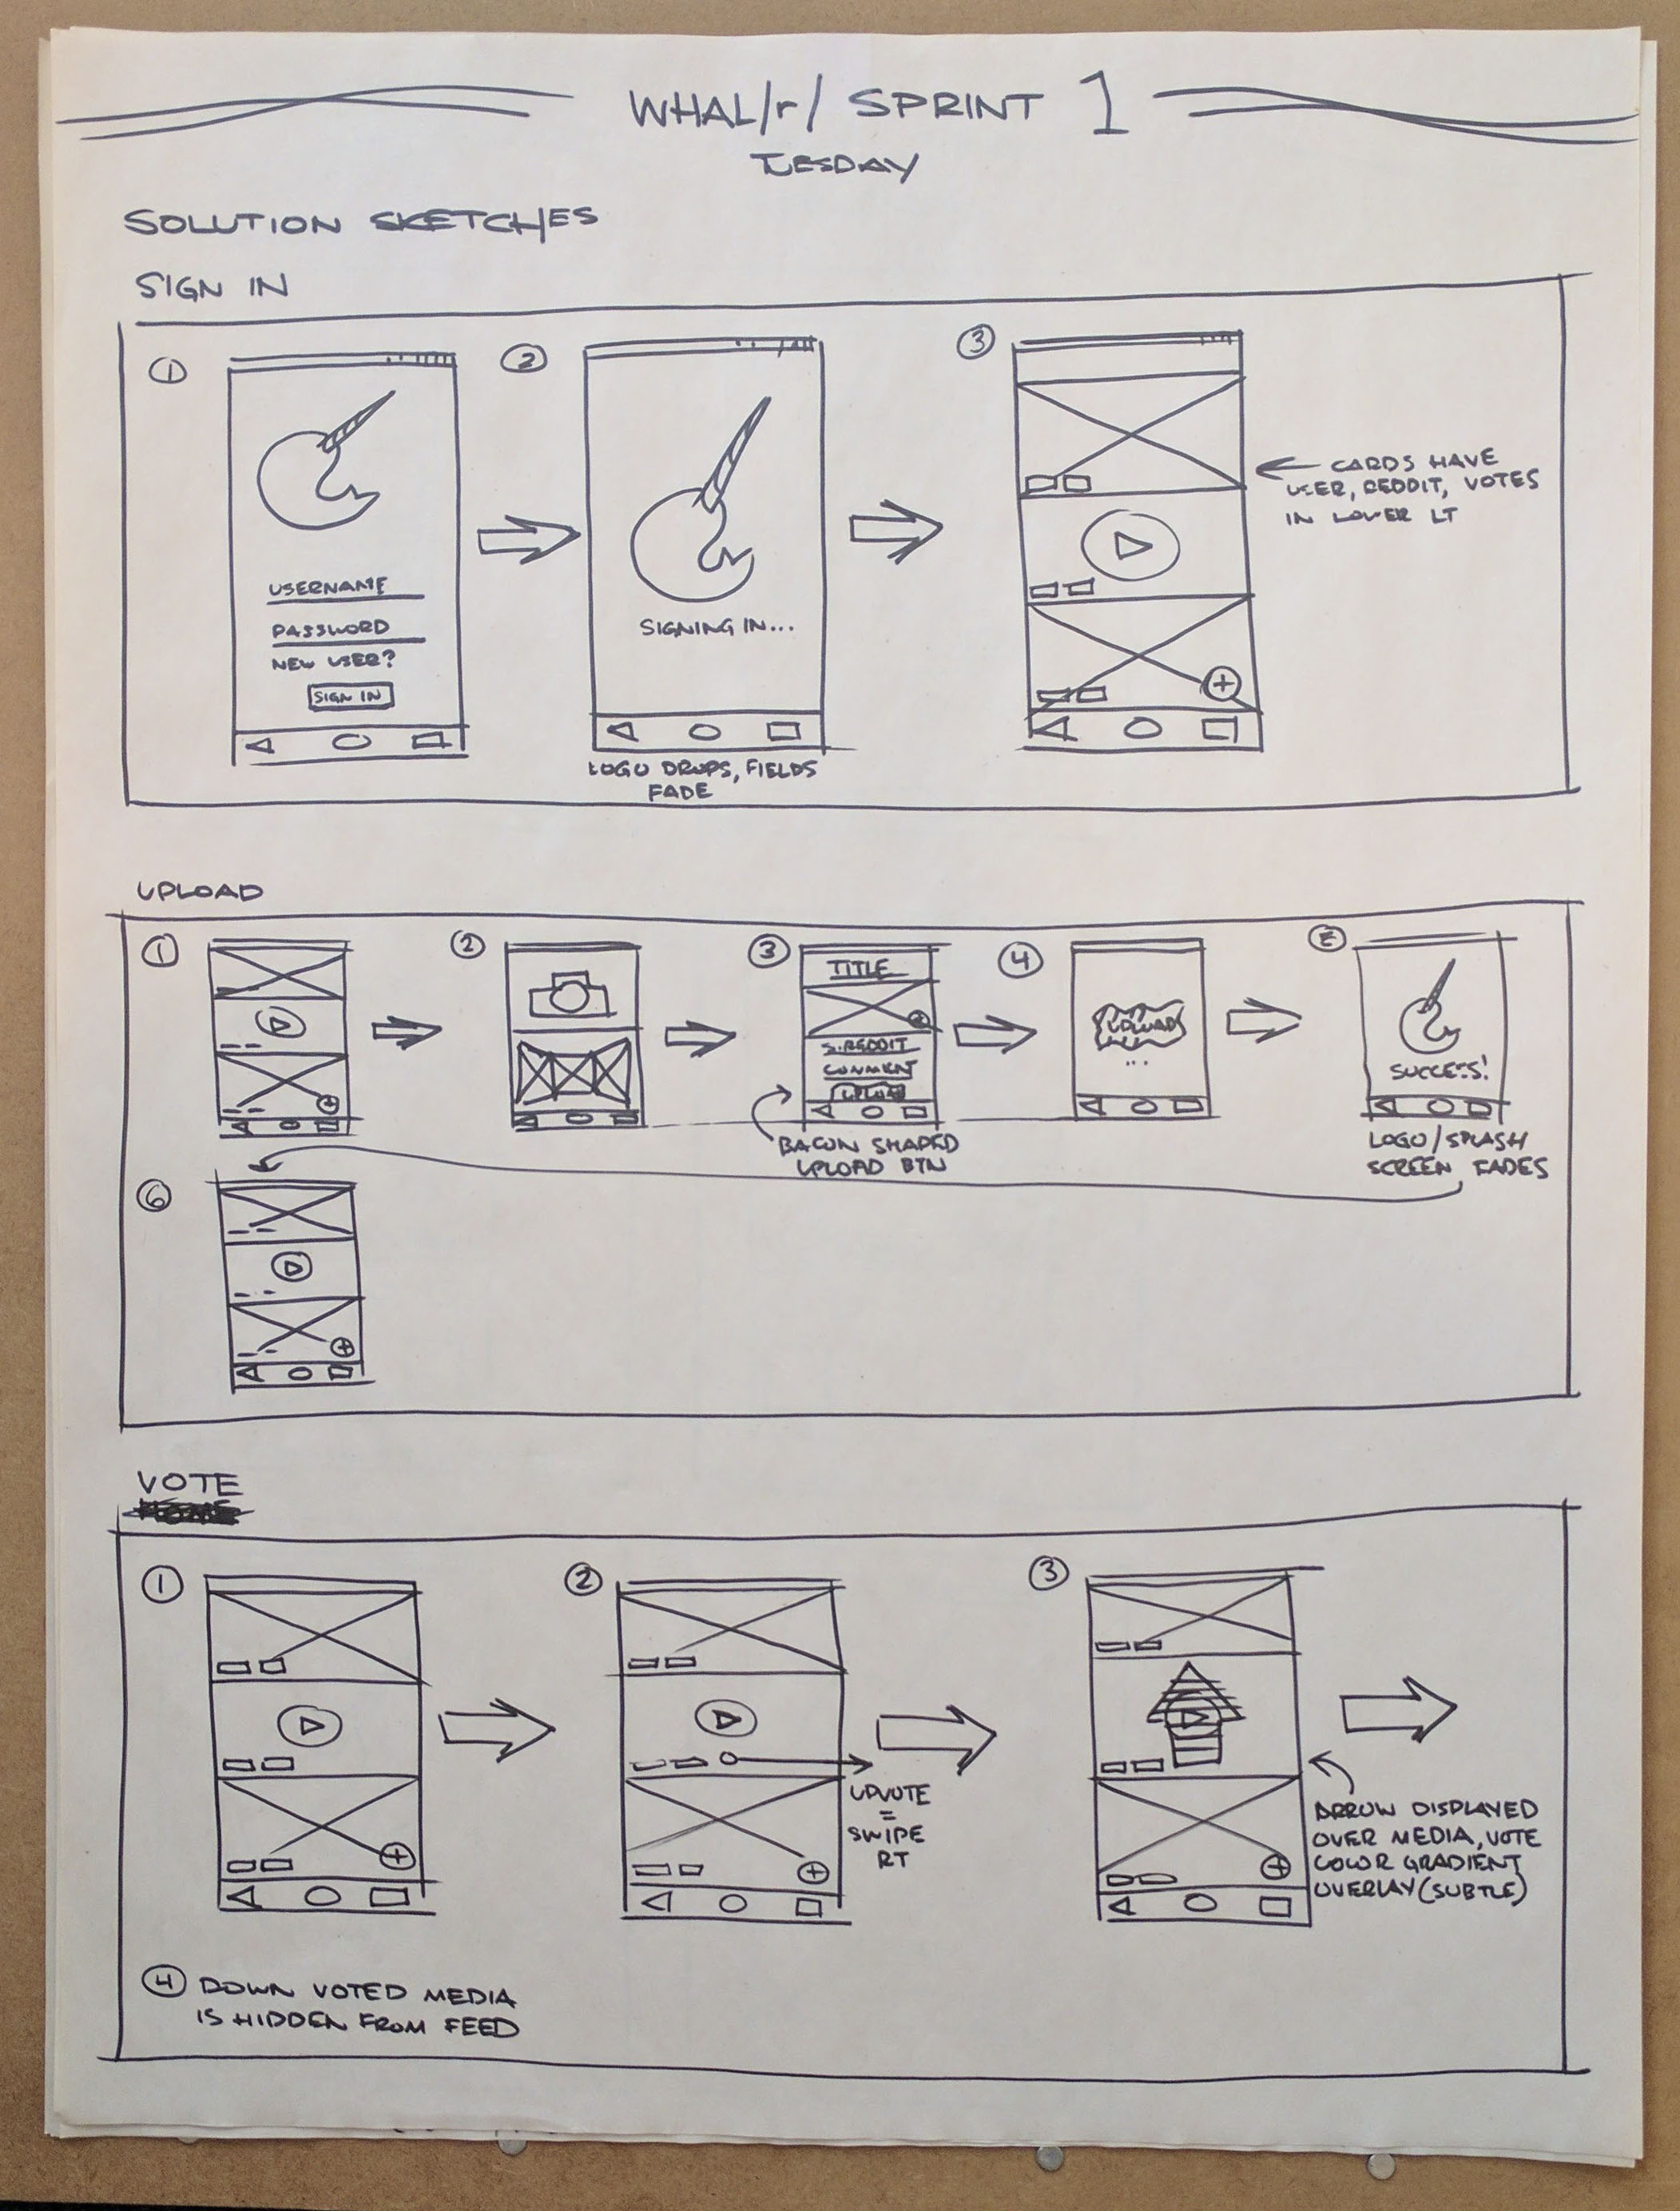 WHAL/r/ SPRINT 1
TUESDAY
SOLUTION SKETCHES
SIGN IN
1
2
3
USERNAME
PASSWORD
NEW USER?
SIGN IN
SIGNING IN...
LOGO DROPS, FIELDS
FADE
← CARDS HAVE
USER, REDDIT, VOTES
IN LOWER LT
UPLOAD
1
2
3
4
TITLE
S.REDDIT
COMMENT
UPLOAD
BACON SHAPED
UPLOAD BTN
UPLOAD
...
SUCCESS!
LOGO/SPLASH
SCREEN FADES
6
VOTE
HOME
1
2
3
UPVOTE
=
SWIPE
RT
ARROW DISPLAYED
OVER MEDIA, VOTE
COLOR GRADIENT
OVERLAY (SUBTLE)
4 DOWN VOTED MEDIA
IS HIDDEN FROM FEED